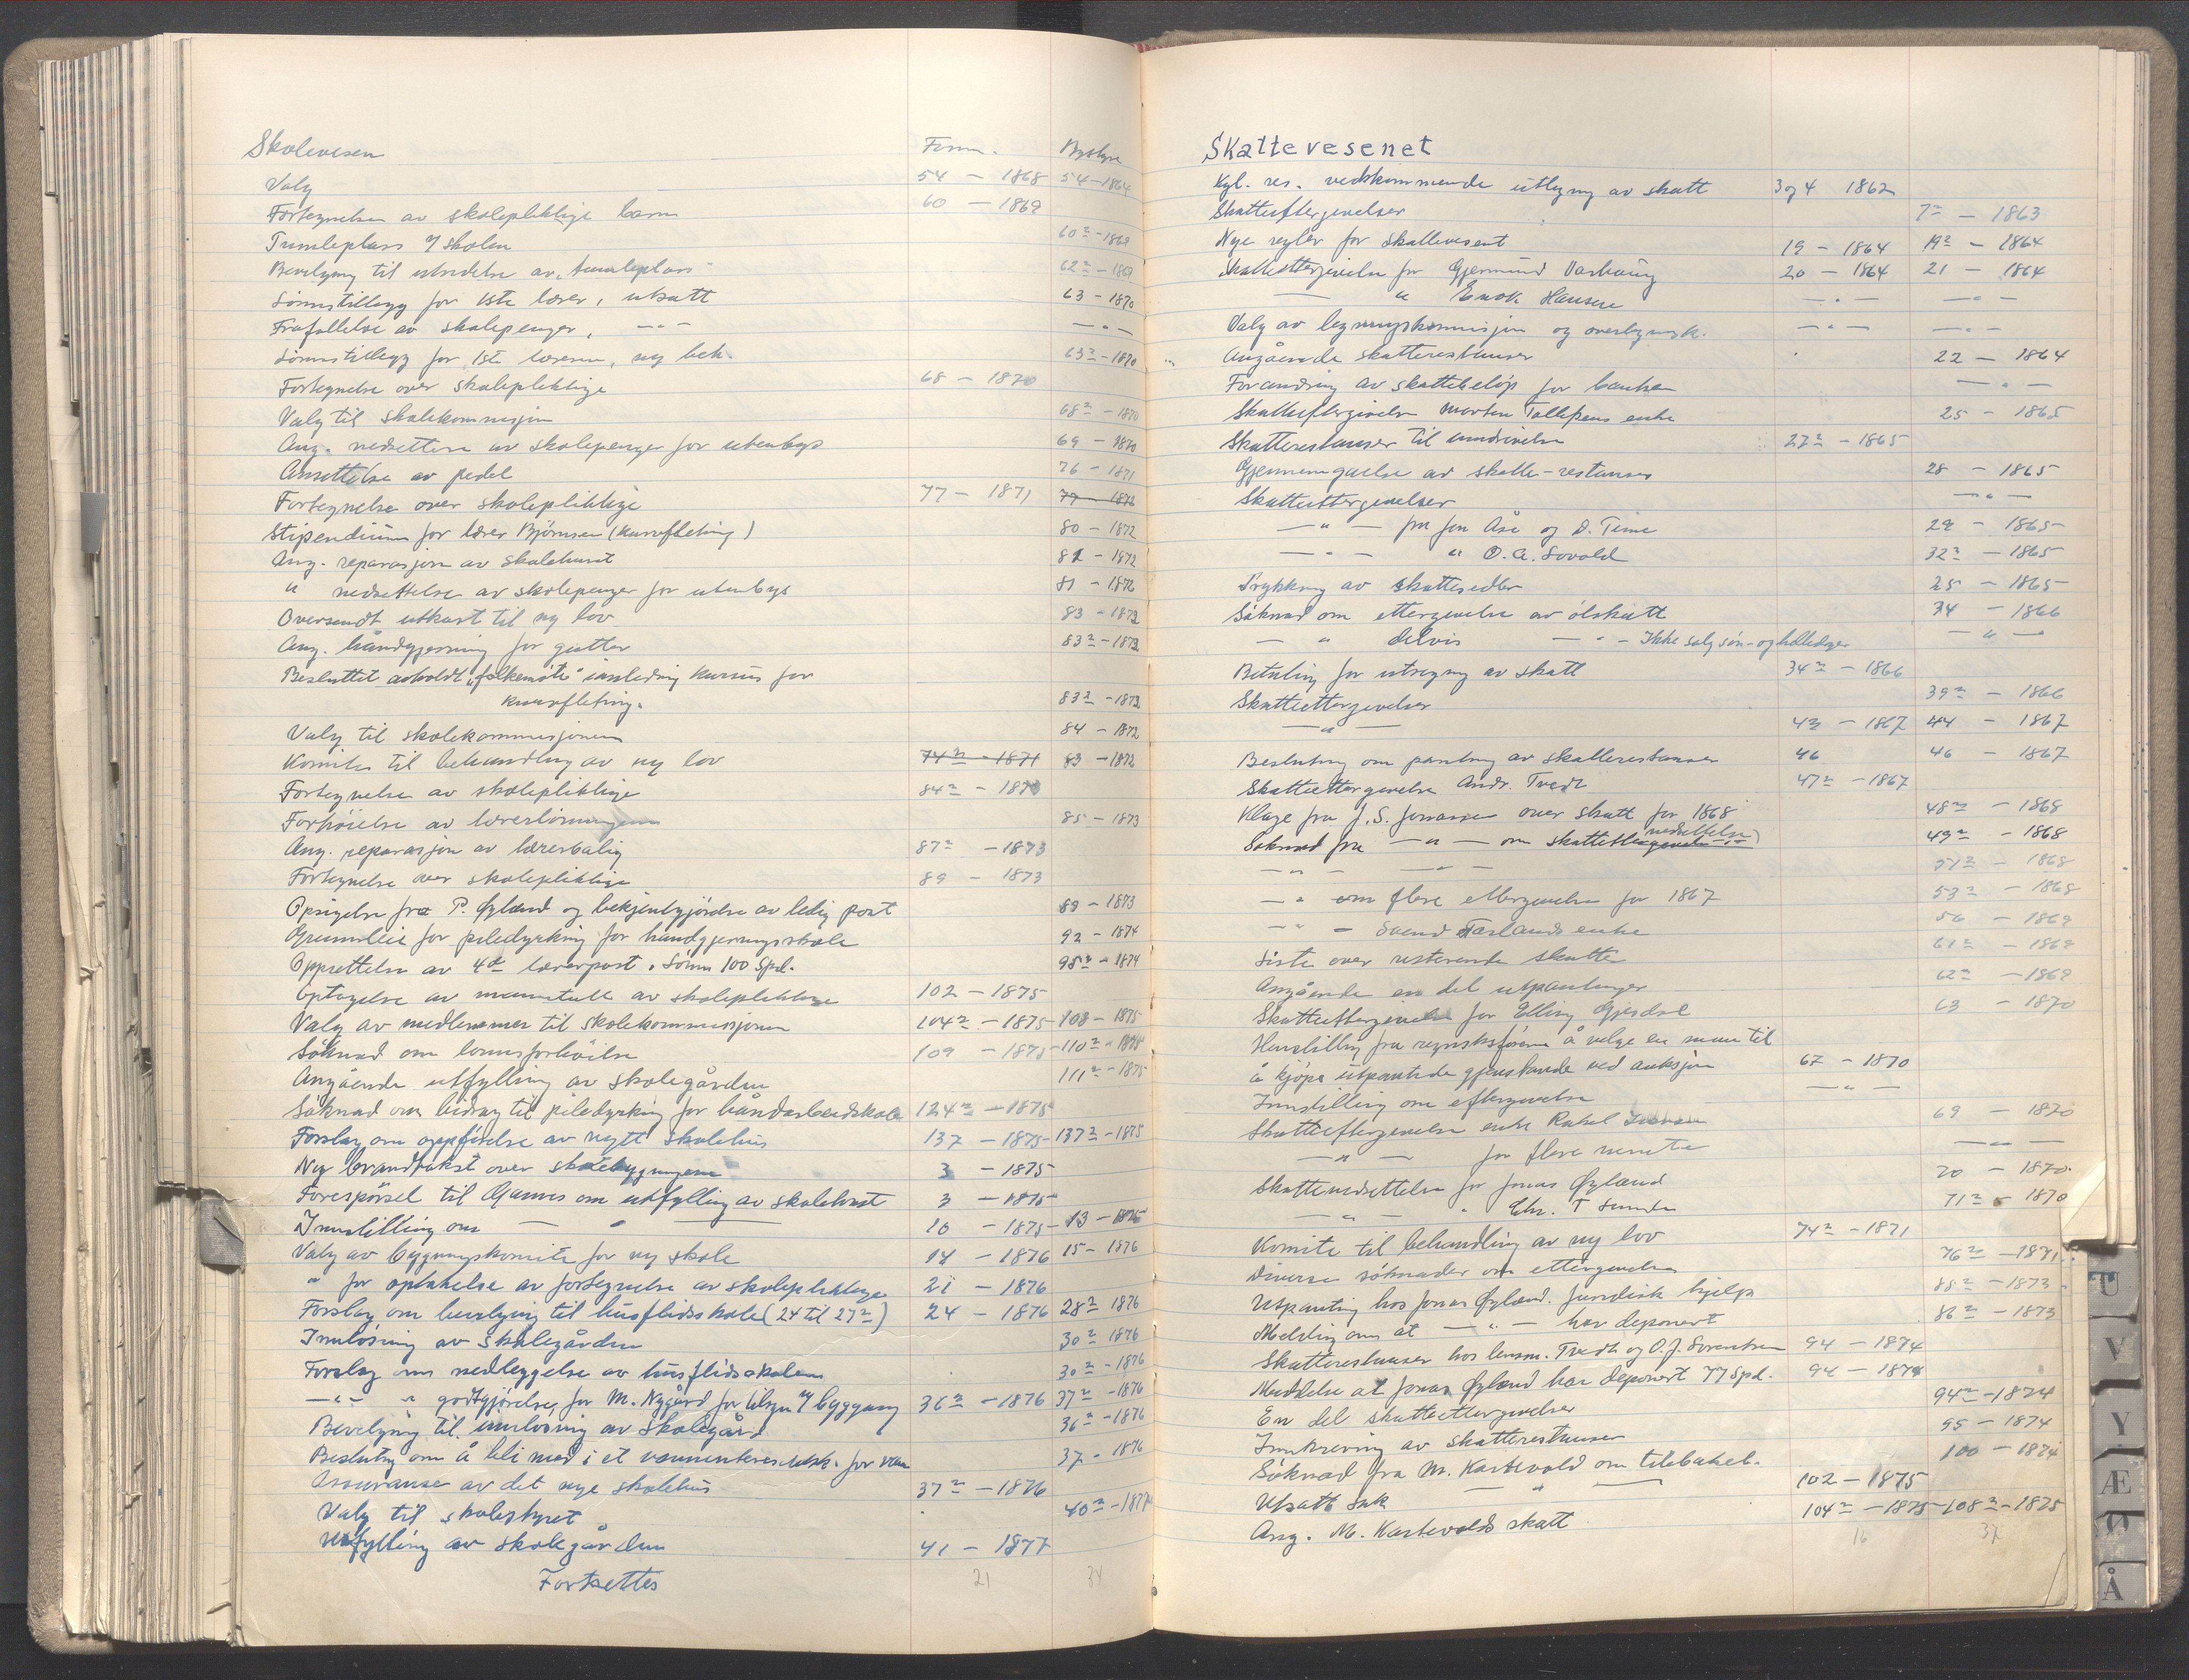 Skolevesen Form. Bystyre
Valg 54 – 1868 54 – 1864
Fortegnelse av skolepliktige barn 60 – 1869
Tumleplass v/ skolen 60 2 – 1869
Bevilgning til utredelse av "tumleplass" 62 2 – 1869
Lønnstillegg for 1ste lærer, utsatt 63 – 1870
Frafallelse av skolepenger, – " – – " –
Lønnstillegg for 1ste læreren, ny beh. 63 2 – 1870
Fortegnelse over skolepliktige 68 – 1870
Valg til skolekommisjon 68 2 – 1870
Ang. nedsettelse av skolepenger for utenbys 69 – 1870
Ansettelse av pedel 76 – 1871
Fortegnelse over skolepliktige 77 – 1871 77 – 1872
Stipendium for lærer Bjørnsen (kurvfletning) 80 – 1872
Ang. reparasjon av skolehuset 81 – 1872
" nedsettelse av skolepenger for utenbys 81 – 1872
Oversendt utkast til ny lov 83 – 1872
Ang. håndgjerning for gutter 83 2 – 1872
Besluttet avholdt "folkemøte" i anledning kursus for
kurvfletning. 83 2 – 1872
Valg til skolekommisjonen 84 – 1872
Komite til behandling av ny lov 74 2 – 1871 83 – 1872
Fortegnelse av skolepliktige 84 2 – 1873
Forhøielse av lærerlønningene 85 – 1873
Ang. reparasjon av lærerbolig 87 2 – 1873
Fortegnelse over skolepliktige 89 – 1873
Opsigelse fra P. Øgland og bekjentgjørelse av ledig post 89 – 1873
Grunnleie for piledyrkning for håndgjerningsskole 92 – 1874
Opprettelse av 4de lærerpost. Lønn 100 Spd. 98 2 – 1874
Optagelse av manntall av skolepliktige 102 – 1875
Valg av medlemmer til skolekommisjonen 104 2 – 1875 108 – 1875
Søknad om lønnsforhøielse 109 – 1875 110 2 – 1875
Angående utfylling av skolegården 111 2 – 1875
Søknad om bidrag til piledyrkning for håndarbeidskole 124 2 – 1875
Forslag om oppførelse av nytt skolehus 137 – 1875 137 2 – 1875
Ny brandtakst over skolebygningene 3 – 1875
Forespørsel til Gannes om utfylling av skolehuset 3 – 1875
Innstilling om — " — 10 – 1875 13 – 1875
Valg av bygningskomite for ny skole 14 – 1876 15 – 1876
" for optakelse av fortegnelse av skolepliktige 21 – 1876
Forslag om bevilgning til husflidsskole (24 til 27 2) 24 – 1876 28 2 1876
Innløsning av skolegården 30 2 1876
Forslag om nedleggelse av husflidsskolen 30 2 – 1876
– " – " godtgjørelse for M. Nygård for tilsyn v/ bygging 36 2 – 1876 37 2 – 1876
Bevilgning til innløsning av skolegård 36 2 – 1876
Beslutning om å bli med i et for 37 – 1876
Assuranse av det nye skolehus 37 2 – 1876
Valg til skolestyret 40 2 – 1877
Utfylling av skolegården 41 – 1877
Fortsettes 21 34
Skattevesenet
Kgl. res. vedkommende utligning av skatt 3 og 4 1862
Skatteeftergivelser 7 2 – 1863
Nye regler for skattevesent 19 – 1864 19 2 – 1864
Skatteettergivelse for Gjermund Varhaug 20 – 1864 21 – 1864
— " Enok Hansen – " – – " –
Valg av ligningskommisjon og overligningsk. – " – – " –
Angående skatterestanser 22 – 1864
Forandring av skattebeløp for banken – " –
Skatteeftergivelse Morten Tollefsens enke 25 – 1865
Skatterestanser til inndrivelse 27 2 – 1865
Gjennemgåelse av skatte-restanser 28 – 1865
Skatteettergivelser – " –
– " – fra Jon Åse og D. Time 29 – 1865
– " – " O. A. Lovald 32 2 – 1865
Trykking av skattesedler 25 – 1865
Søknad om ettergivelse av ølskatt 34 – 1866
– " delvis – " – Ikke salg søn- og helledager – " –
Betaling for utregning av skatt 34 2 – 1866
Skatteettergivelser 39 2 – 1866
— " — 43 – 1867 44 – 1867
Beslutning om panting av skatterestanser 46 46 – 1867
Skatteettergivelse Andr. Tvedt 47 2 – 1867
Klage fra J. S. Jonassen over skatt for 1868 48 2 – 1868
Søknad fra – " – om skattettergivelse nedsettelse 49 2 – 1868
– " – – " – 51 2 – 1868
– " om flere ettergivelser for 1867 53 2 – 1868
– " – Svend Tarlands enke 56 – 1869
Liste over resterende skatter 61 2 – 1869
Angående en del utpantinger 62 2 – 1869
Skatteeftergivelse for Elling Gjesdal 63 – 1870
Henstilling fra regnskapsføreren å velge en mann til
å kjøpe utpantede gjenstande ved auksjon 67 – 1870
Innstilling om eftergivelse – " –
Skatteeftergivelse enke Rakel 69 – 1870
– " – for flere nevnte – " –
Skattenedsettelse for Jonas Øgland 70 – 1870
– " – " Chr. T. Lunde 71 2 – 1870
Komite til behandling av ny lov 74 2 – 1871
Diverse søknader om ettergivelse 76 2 – 1871
Utpanting hos Jonas Øgland. Juridisk hjelp 88 2 – 1873
Melding om at – " – har deponert 86 2 – 1873
Skatterestanser hos lensm. Tvedt og O. J. Lorentsen 94 – 1874
Meddelse at Jonas Øgland har deponert 77 Spd. 94 – 1874
En del skatteettergivelser 94 2 – 1874
Innkreving av skatterestanser 95 – 1874
Søknad fra M. Kartevold om tilbakeb. 100 – 1874
Utsatt sak – " – 102 – 1875
Ang. M. Kartevolds skatt 104 2 – 1875 108 2 – 1875
16 37
U
V
Y
Æ
Ø
Å